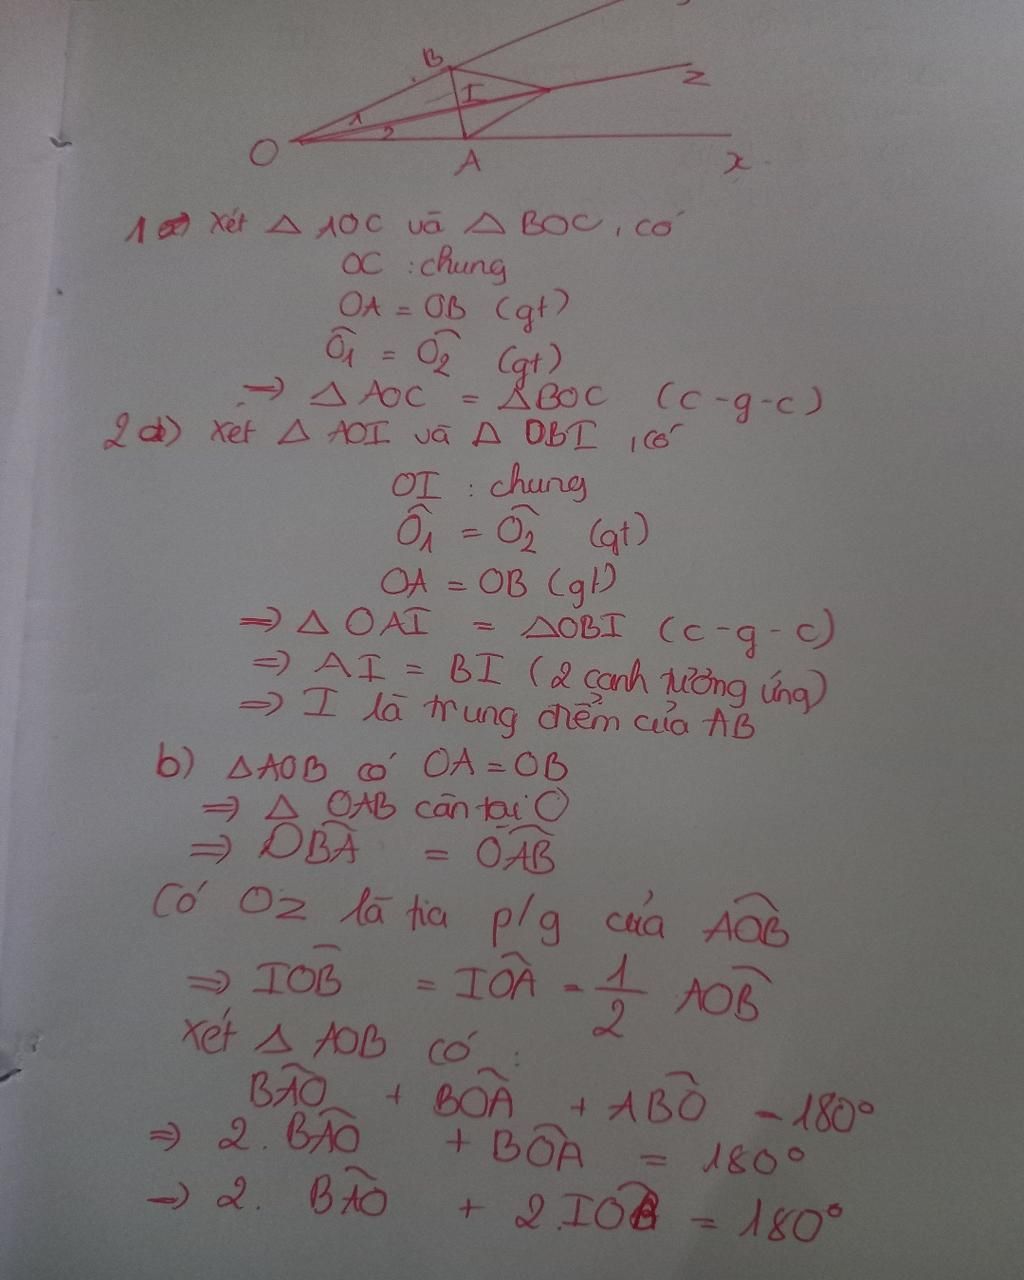 B
I
z
1
2
O
A
x
1a) Xét △ AOC và △ BOC, có
OC : chung
OA = OB (gt)
Ô1 = Ô2 (gt)
=> △ AOC = △BOC (c-g-c)
2a) Xét △ AOI và △ OBI, có
OI : chung
Ô1 = Ô2 (gt)
OA = OB (gt)
=> △ OAI = △OBI (c-g-c)
=> AI = BI (2 cạnh tương ứng)
=> I là trung điểm của AB
b) △AOB có OA = OB
=> △ OAB cân tại O
=> OB̂A = OÂB
Có Oz là tia p/g của AÔB
=> IÔB = IÔA = 1/2 AÔB
Xét △ AOB có :
BÂO + BÔA + AB̂O = 180°
=> 2. BÂO + BÔA = 180°
=> 2. BÂO + 2.IÔB = 180°